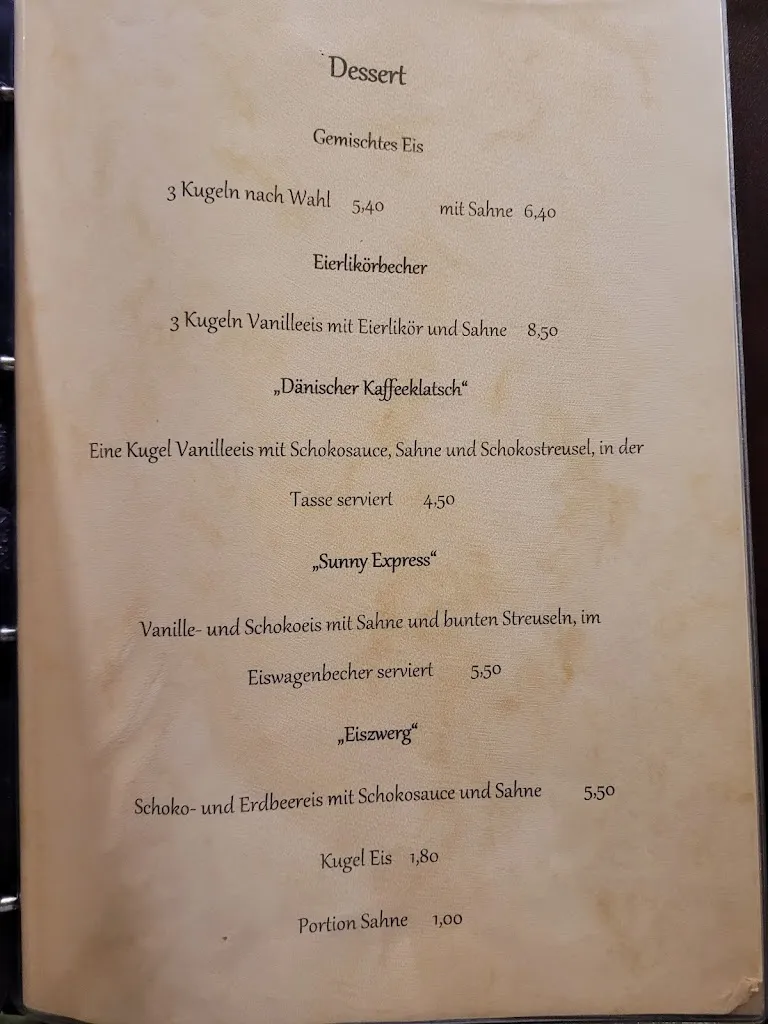 Dessert
Gemischtes Eis
3 Kugeln nach Wahl 5,40 mit Sahne 6,40
Eierlikörbecher
3 Kugeln Vanilleeis mit Eierlikör und Sahne 8,50
„Dänischer Kaffeeklatsch“
Eine Kugel Vanilleeis mit Schokosauce, Sahne und Schokostreusel, in der
Tasse serviert 4,50
„Sunny Express“
Vanille- und Schokoeis mit Sahne und bunten Streuseln, im
Eiswagenbecher serviert 5,50
„Eiszwerg“
Schoko- und Erdbeereis mit Schokosauce und Sahne 5,50
Kugel Eis 1,80
Portion Sahne 1,00